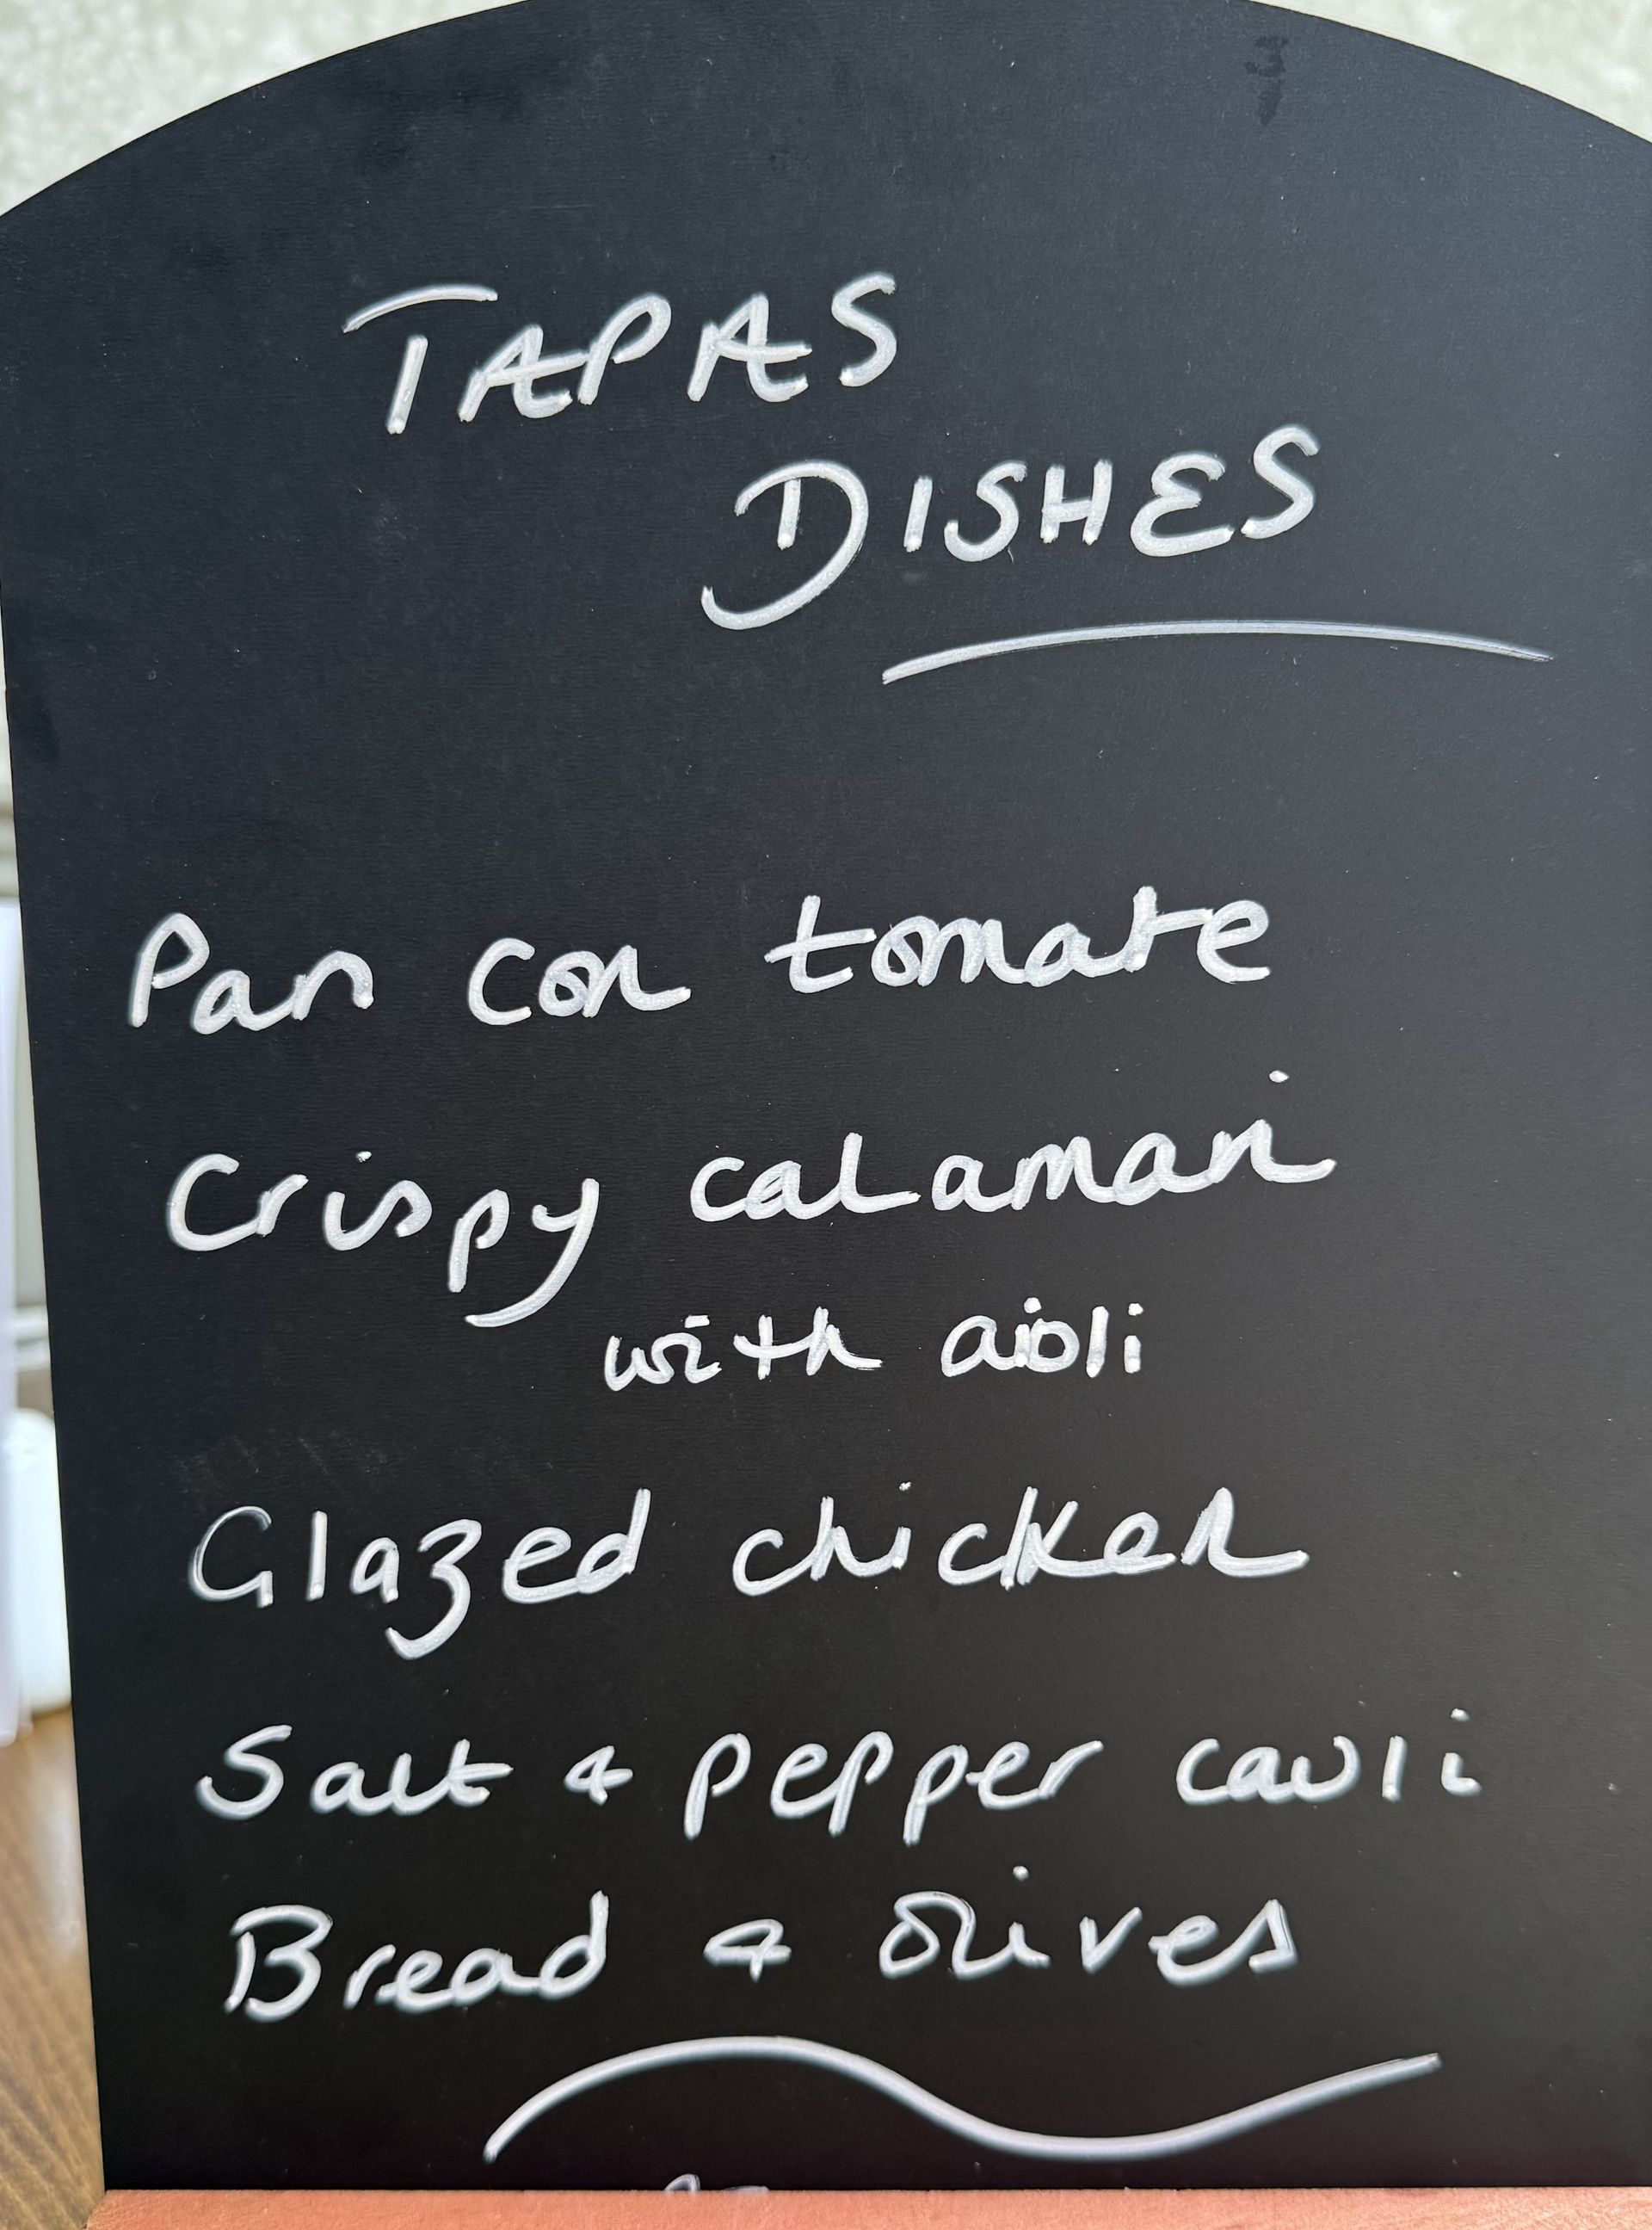 TAPAS
DISHES
Pan con tomate
Crispy calamari
with aioli
Glazed chicken
Salt & pepper cauli
Bread & olives